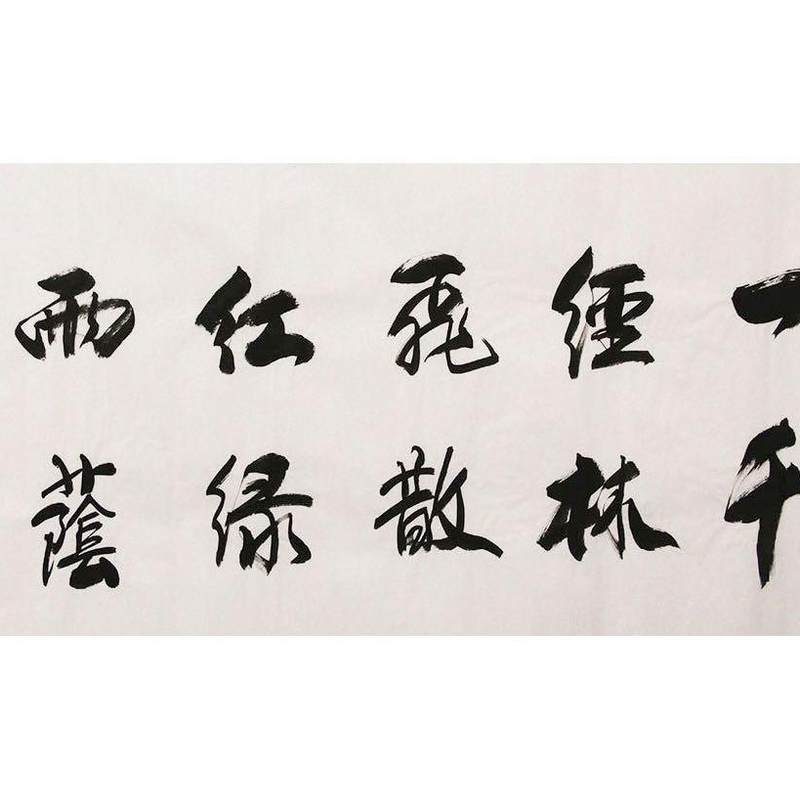 一經飛紅雨
千林散綠蔭